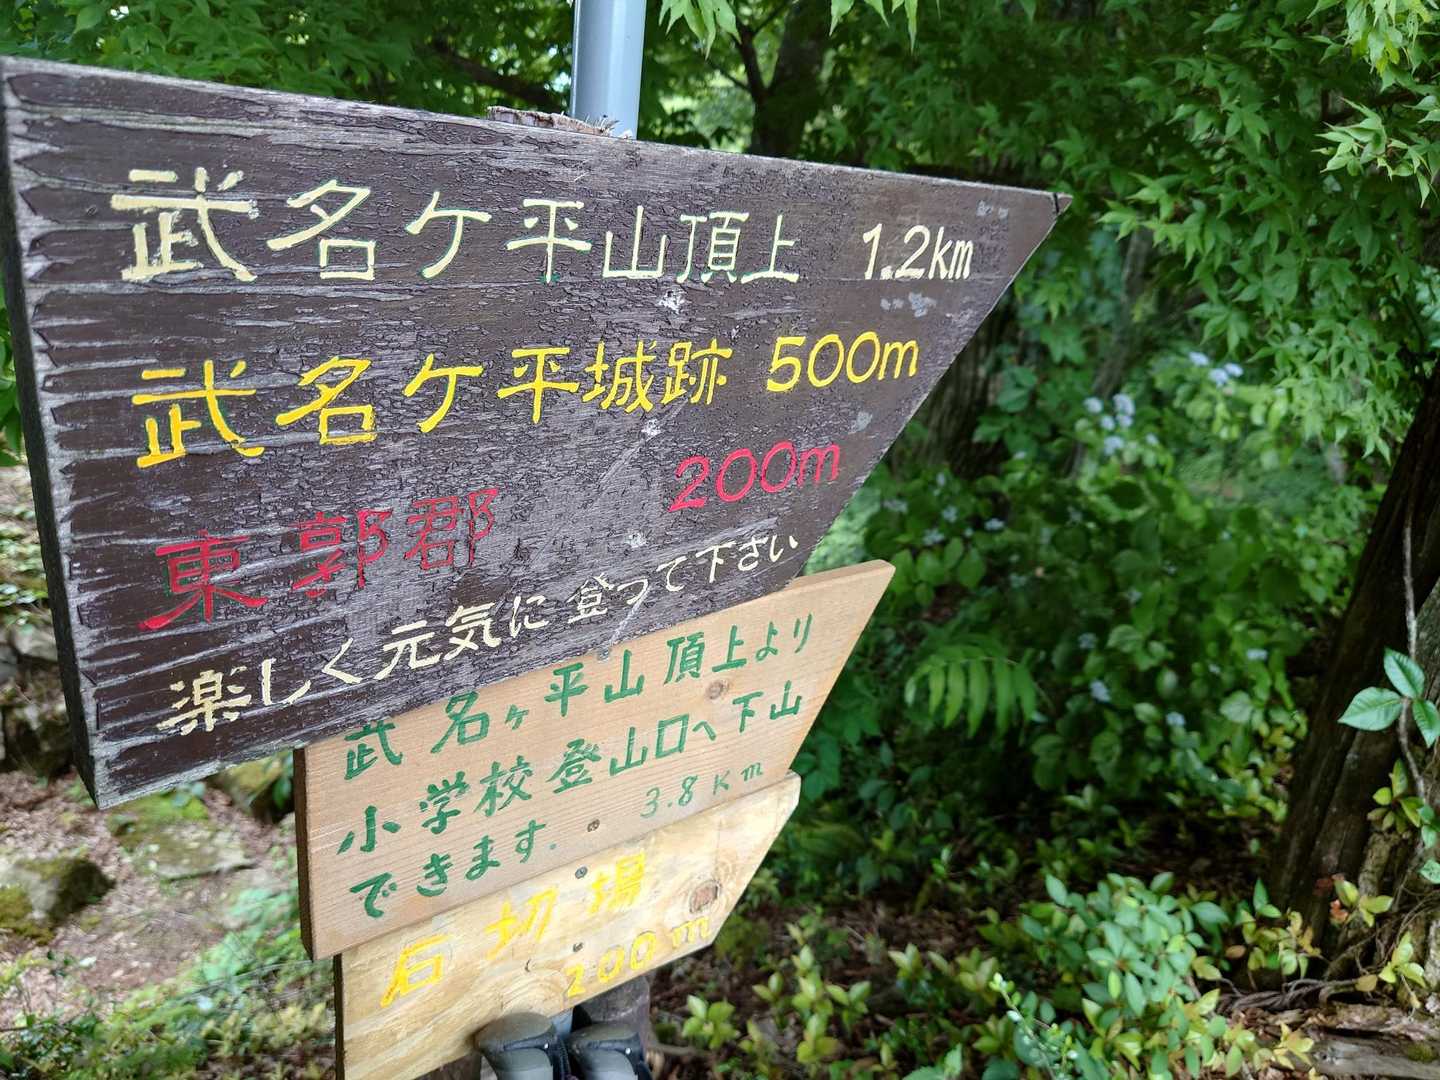 武名ケ平山頂上 1.2km
武名ケ平城跡 500m
東郭郡 200m
楽しく元気に登って下さい
武名ヶ平山頂上より
小学校登山口へ下山
できます. 3.8Km
石切場
200m